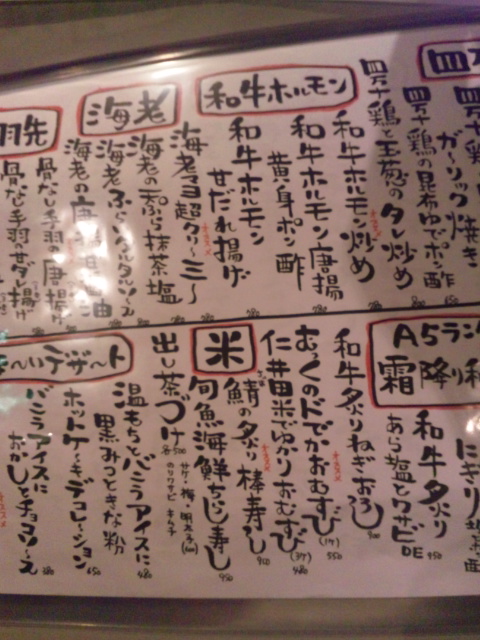 四万十鶏の昆布ゆでポン酢
四万十鶏と玉葱のタレ炒め
和牛ホルモン
和牛ホルモン炒め
和牛ホルモン唐揚
黄身ポン酢
和牛ホルモン
甘だれ揚げ
海老
海老マヨ超クリ〜ミ〜
海老の天ぷら抹茶塩
海老ふらいタルタルソ〜ス
海老の唐揚
羽先
骨なし手羽の唐揚げ
骨なし手羽の甘ダレ揚げ
A5ラン
霜降り和
和牛炙り
あら塩とワサビDE
450
和牛炙りねぎおろし
むっくのドでかおむすび
(1ケ)
550
仁井田米でゆかりおむすび
(3ケ)
480
米
鯖の炙り棒寿し
900
旬魚海鮮ちらし寿し
950
出し茶づけ
各500
サケ・梅・明太子
のりワサビ キムチ
デザ〜ト
温もちとバニラアイスに
黒みつときな粉
480
ホットケーキデコレーション
650
バニラアイスに
おかしとチョコソ〜ス